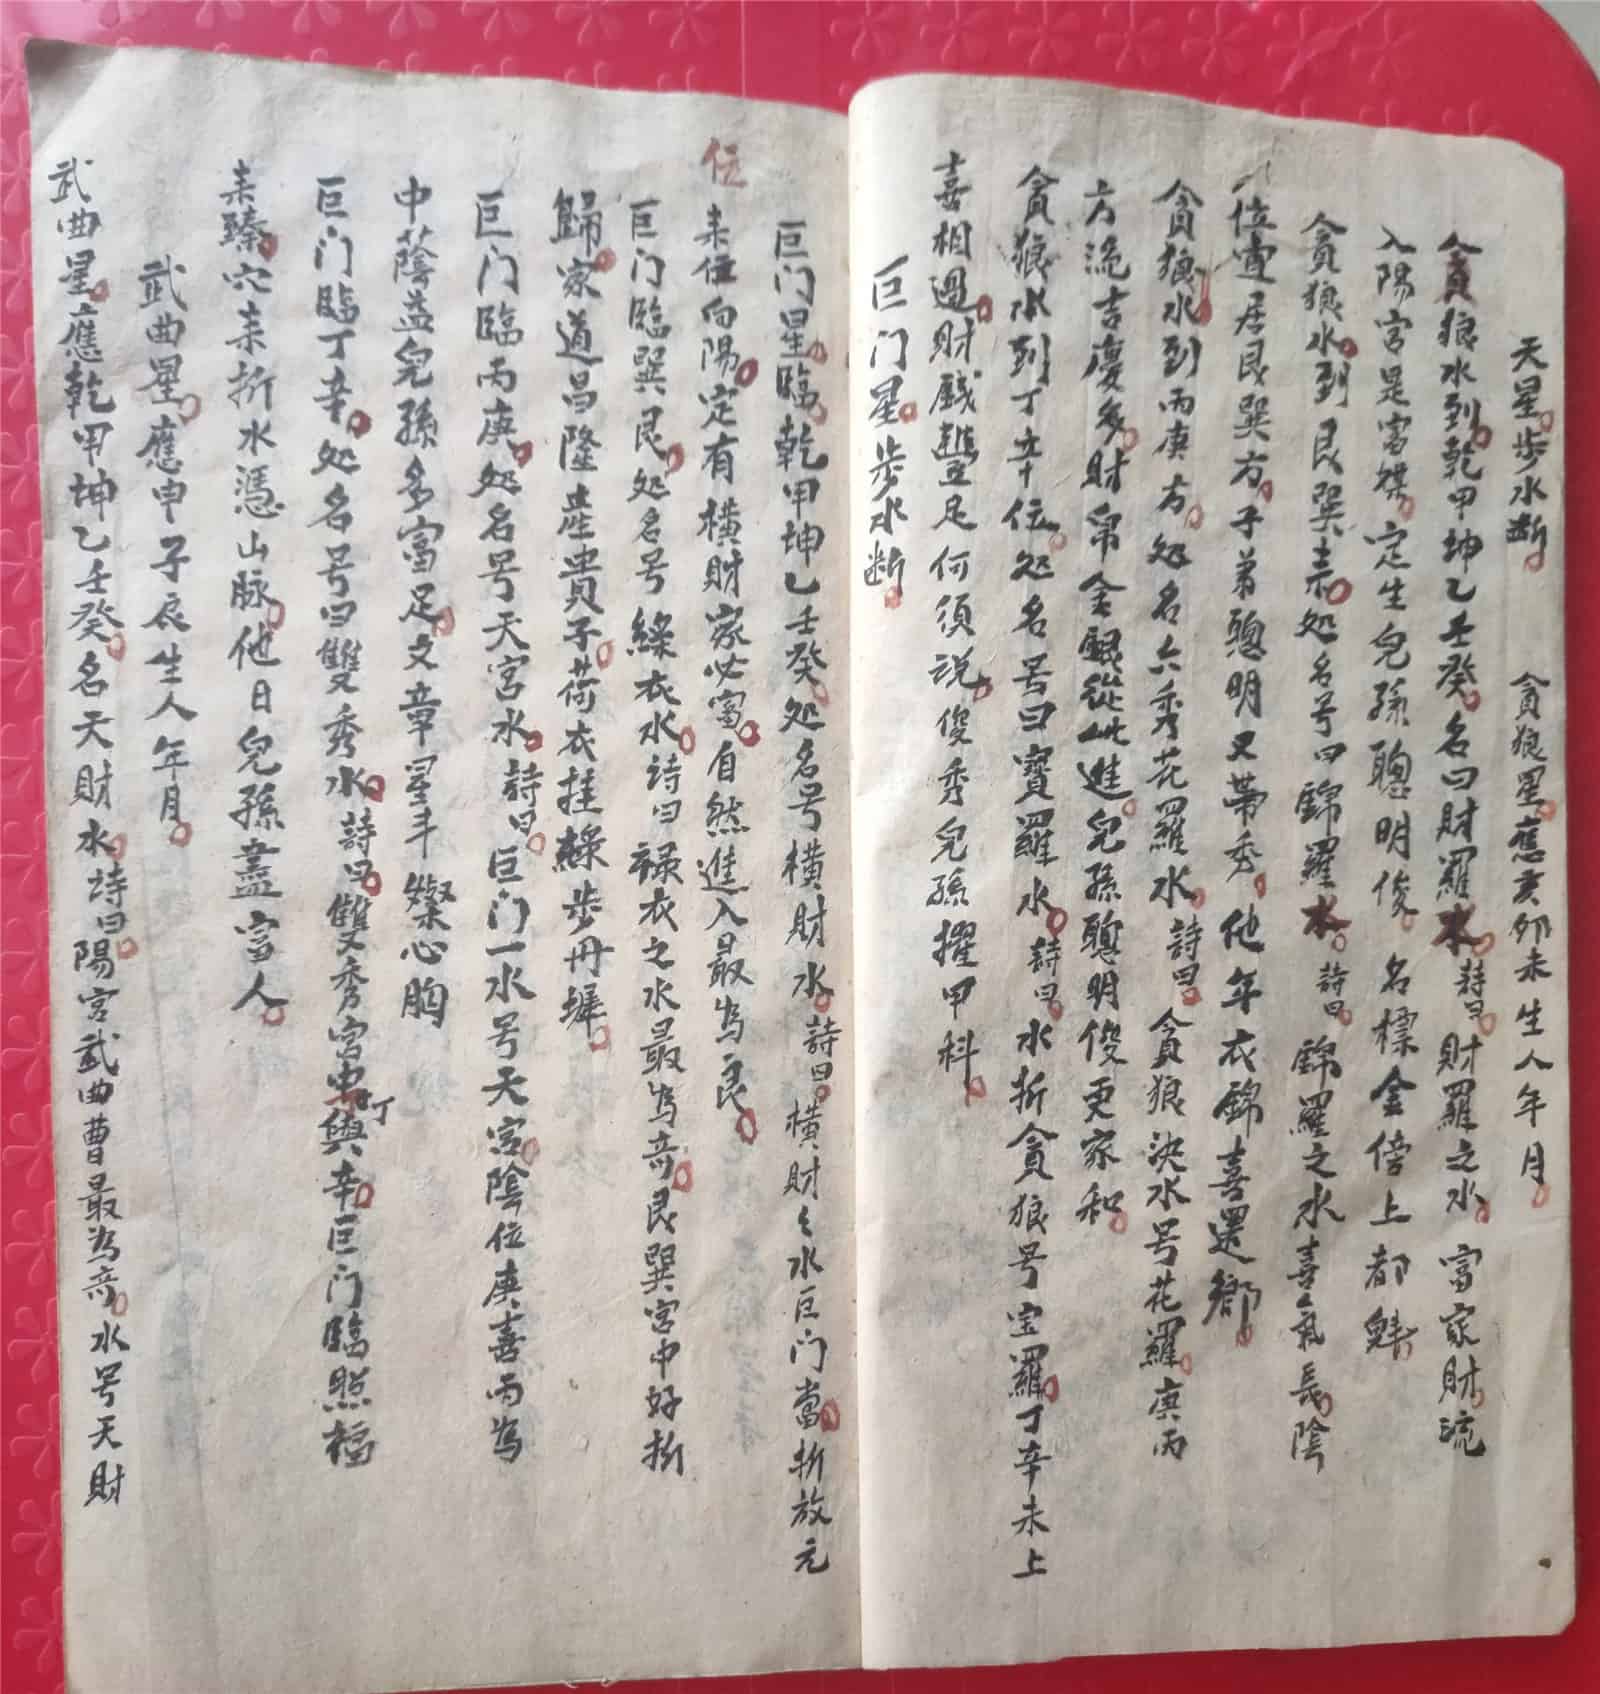 天星步水断 貪狼星應亥卯未生人年月
貪狼水到乾甲坤乙壬癸名曰財羅水詩曰財羅之水富家財流
入陽宮是富媒定生兒孫聰明俊名標金傍上都魁
貪狼水到艮巽未处名号曰錦羅水詩曰錦羅之水喜氣長陰
位宜居艮巽方子弟聰明又帶秀他年衣錦喜還鄉
貪狼水到丙庚方处名六秀花羅水詩曰貪狼决水号花羅庚丙
方流吉慶多財帛金銀從此進兒孫聰明俊更家和
貪狼水到丁辛位处名号曰寶羅水詩曰水折貪狼号宝羅丁辛未上
喜相過財戲豊足何須説俊秀兒孫擢甲科
巨门星步水断
巨门星臨乾甲坤乙壬癸处名号橫財水詩曰橫財之水巨门當折放元
位
来位向陽定有橫財家必富自然進入最为良
巨门臨巽艮处名号綠衣水詩曰祿衣之水最为奇艮巽宮中好折
歸家道昌隆産貴子荷衣挂綠步丹墀
巨门臨丙庚处名号天宮水詩曰巨门一水号天宮陰位庚喜丙为
中蔭益兒孫多富足文章星斗燦心胸
巨门臨丁辛处名号曰雙秀水詩曰雙秀宮中丁與辛巨门臨照福
来臻穴来折水憑山脉他日兒孫盡富人
武曲星應申子辰生人年月
武曲星應乾甲坤乙壬癸名天財水詩曰陽宮武曲曹最為奇水号天財